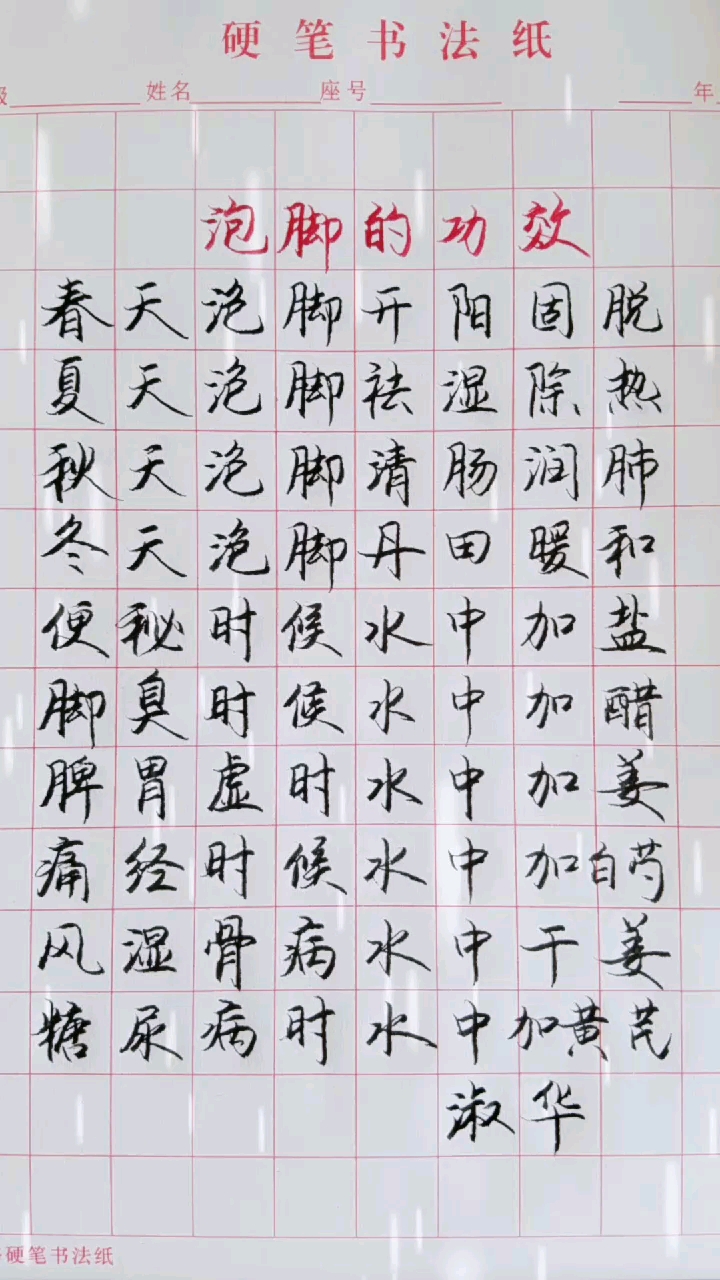 硬笔书法纸
级 姓名 座号 年
泡脚的功效
春天泡脚开阳固脱
夏天泡脚祛湿除热
秋天泡脚清肠润肺
冬天泡脚丹田暖和
便秘时候水中加盐
脚臭时候水中加醋
脾胃虚时水中加姜
痛经时候水中加白芍
风湿骨病水中干姜
糖尿病时水中加黄芪
淑华
硬笔书法纸